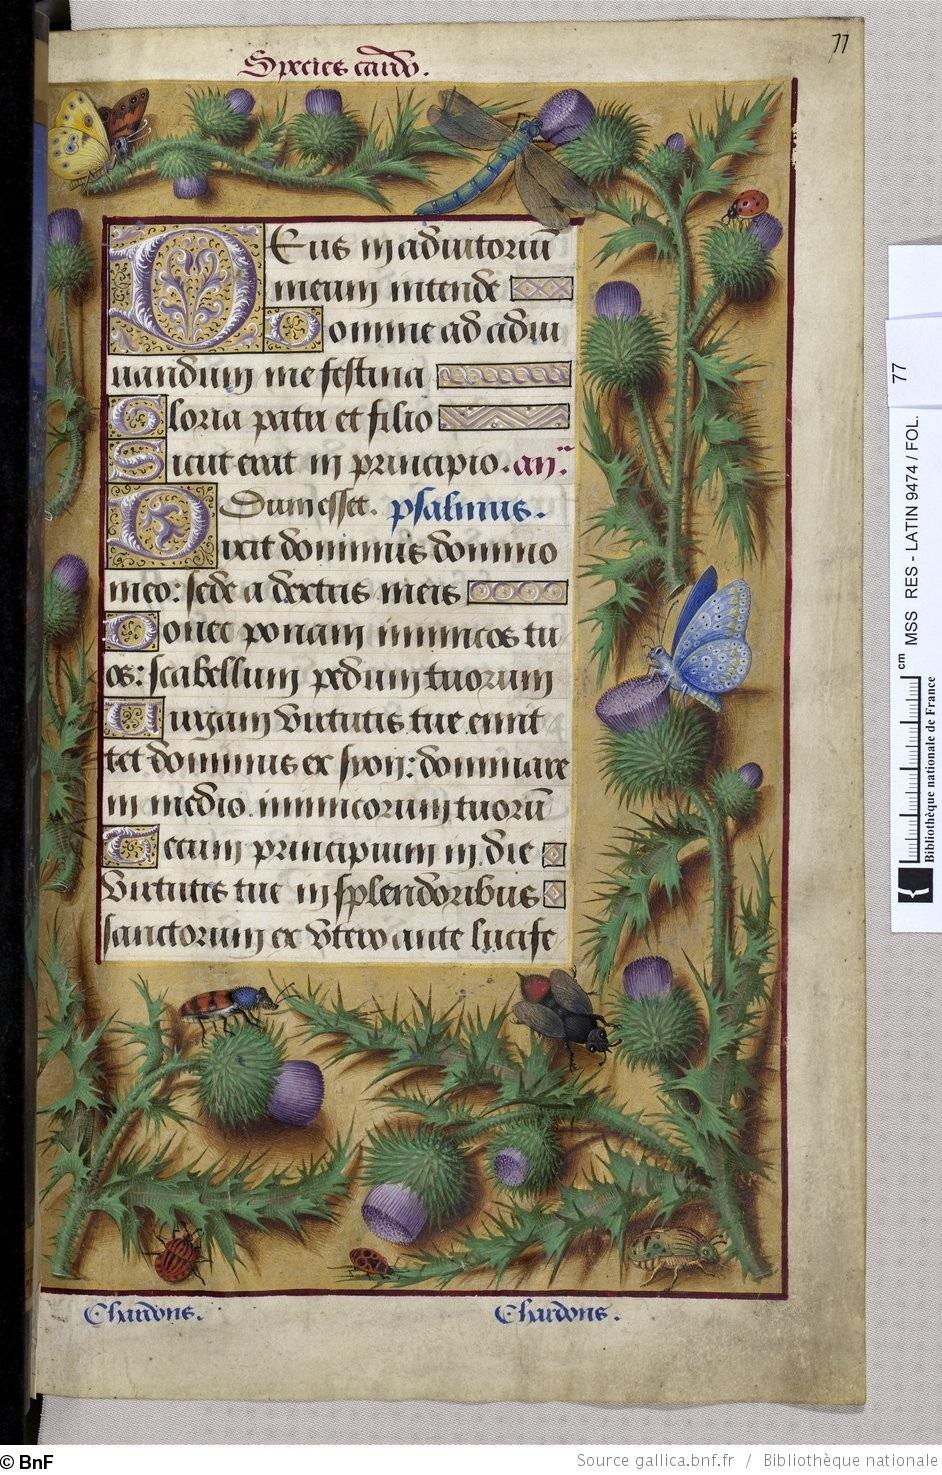 77
Species cardo.
DEus in adiutoriū
meum intende
Domine ad adiu
uandum me festina
Gloria patri et filio
Sicut erat in principio. an̄.
Dum esset. psalmus.
Dixit dominus domino
meo: sede a dextris meis
Donec ponam inimicos tu
os: scabellum pedum tuorum
Uirgam virtutis tue emit
tet dominus ex syon: dominare
in medio inimicorum tuorū
Tecum principium in die
virtutis tue in splendoribus
sanctorum ex vtero ante lucife
Chardons.
Chardons.
77
MSS RES - LATIN 9474 / FOL.
cm
Bibliothèque nationale de France
© BnF
Source gallica.bnf.fr / Bibliothèque nationale